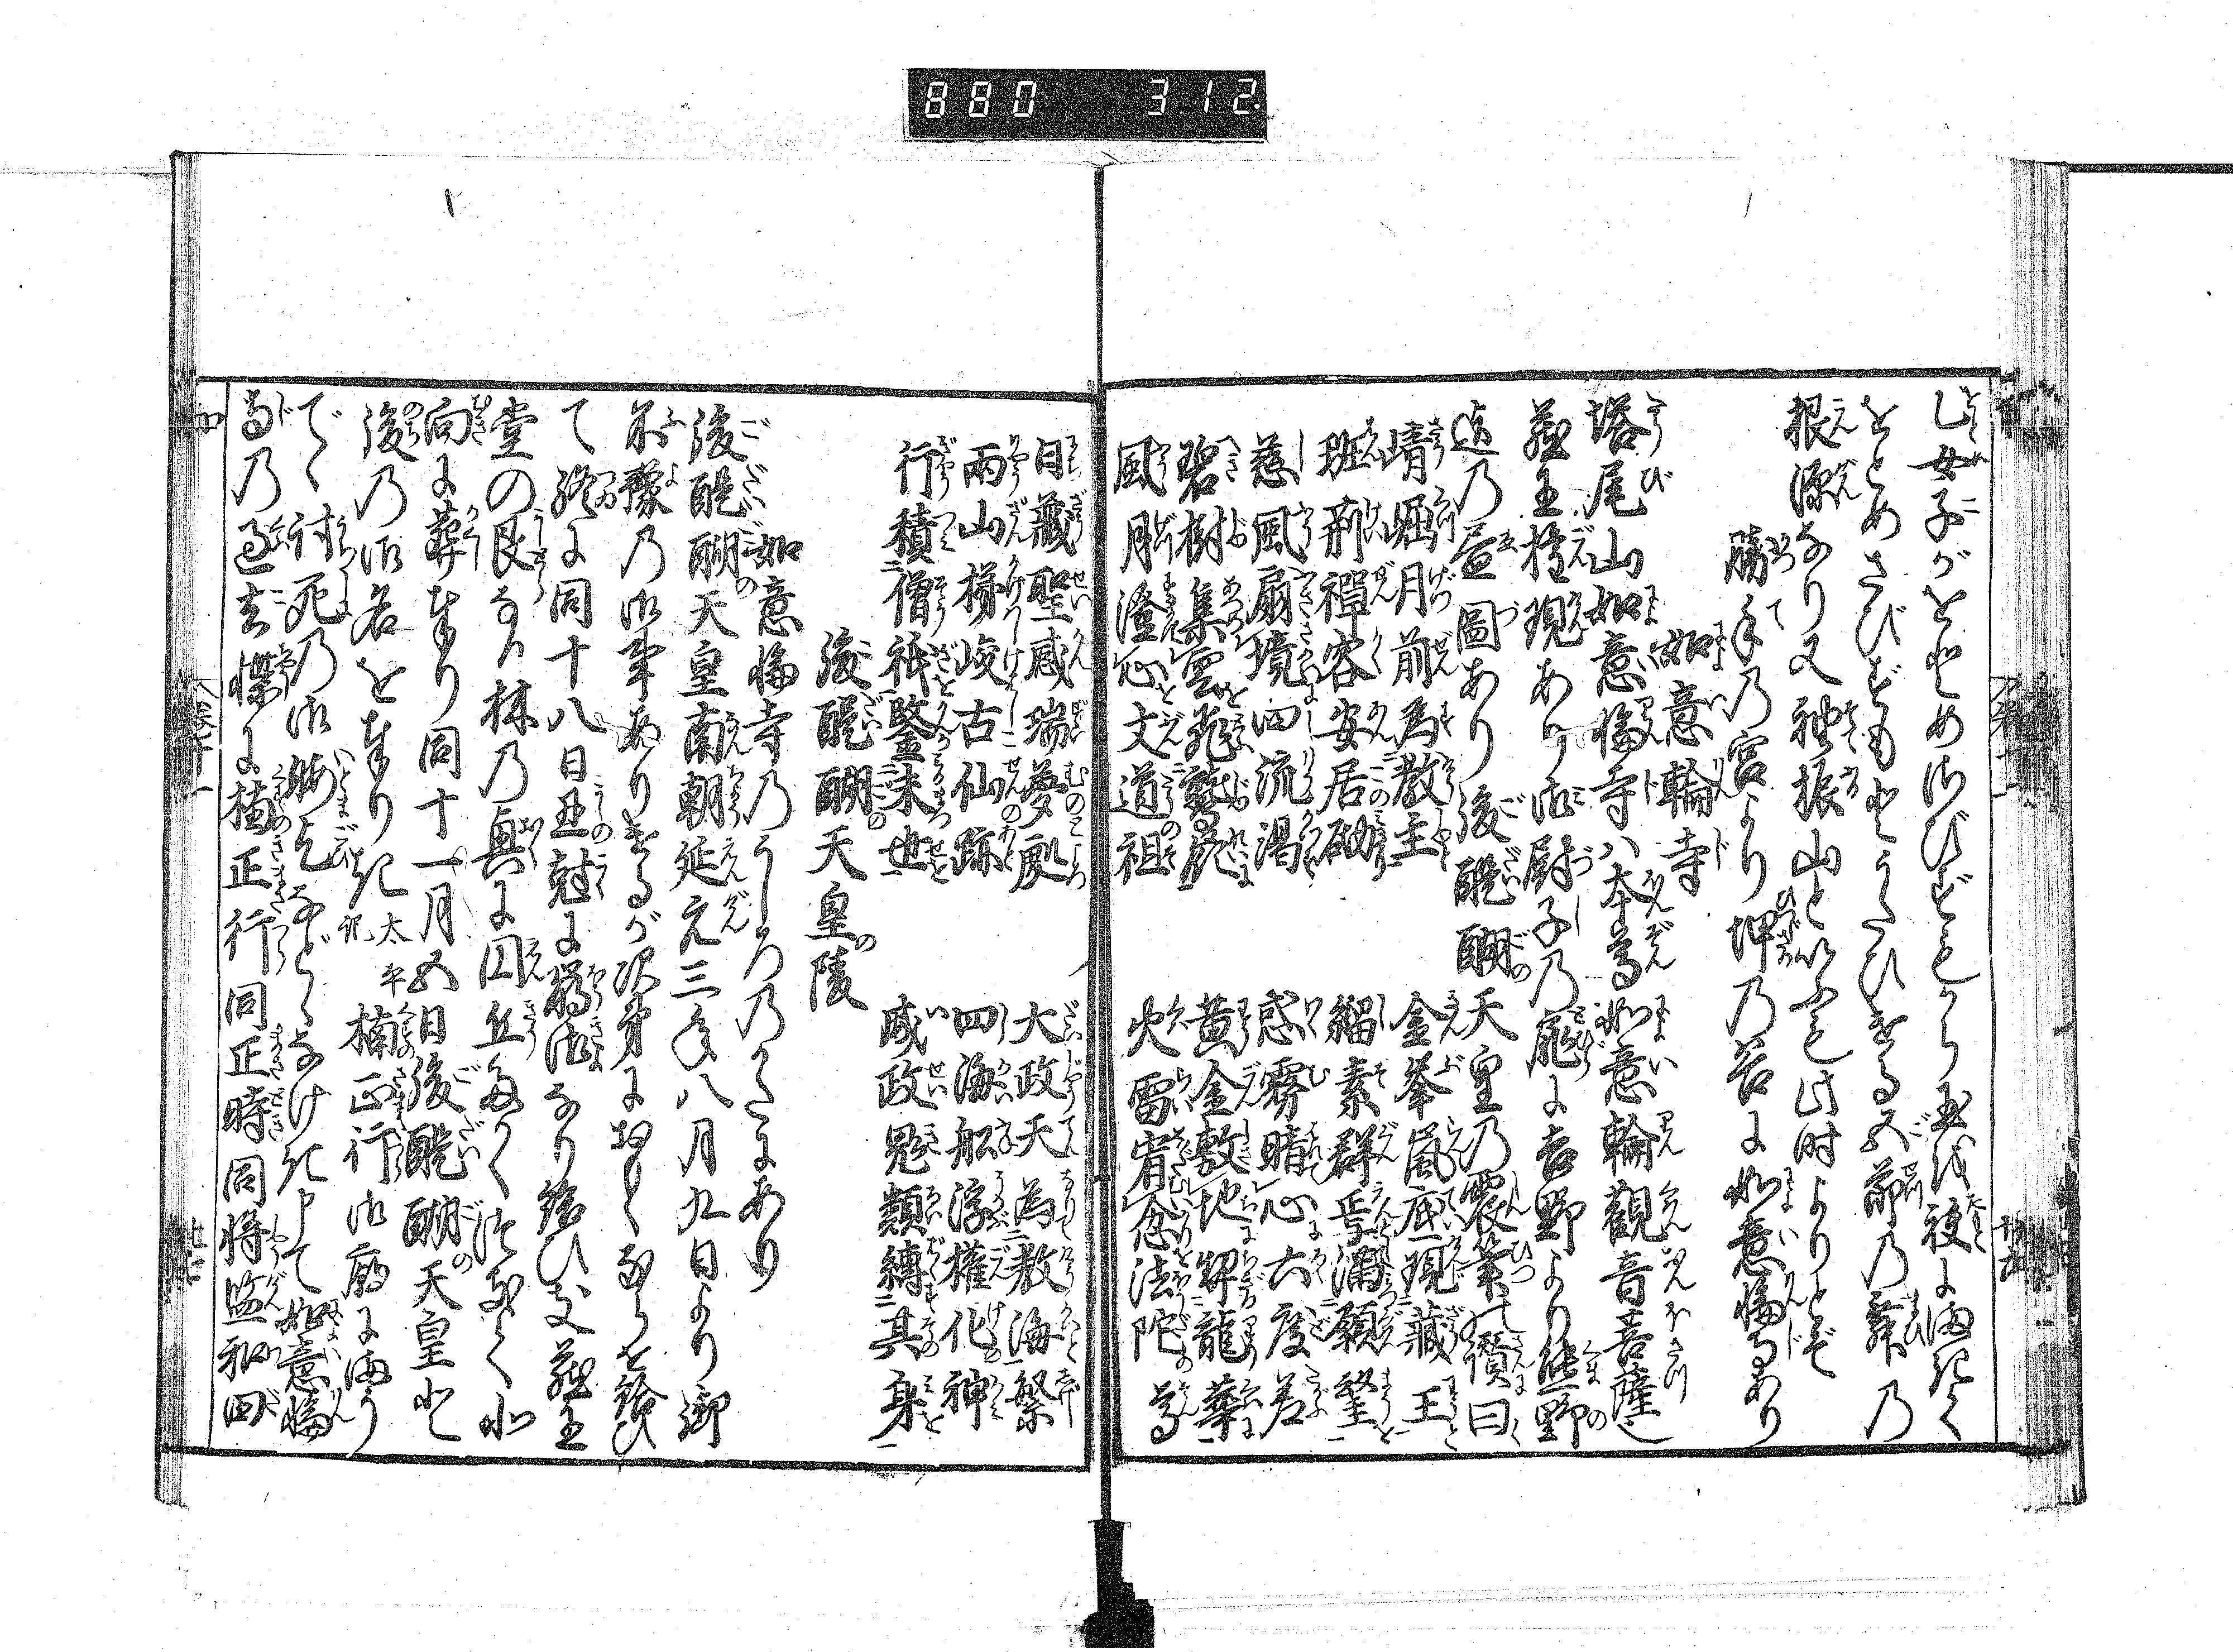 880 312.
乙女子がをとめさびすもから玉を袂にまきて
をとめさびすもとうたひける五節の舞の
根源なり又袖振山といふも此時よりとぞ
勝手の宮より坤の谷に如意輪寺あり
如意輪寺
塔尾山如意輪寺ハ本尊如意輪觀音菩薩
蔵王権現あり御厨子の扉に吉野より熊野
迄の畫圖あり後醍醐天皇乃震筆の讚に曰
崝崛月前為教主 金峯嵐底現藏王
班荊禪容安居砌 緇素群焉滿願望
慈風扇境四流渇 惑霧晴心六度
碧樹集雲飛鷲 黄金敷地開龍華
風月澄心文道祖 火雷宥念法陀尊
日藏聖感瑞夢殿 大政天為教海繋
兩山梯峻古仙跡 四海船浮權化神
行積僧祇鑒末世 威政鬼類縛其身
後醍醐天皇陵
如意輪寺乃うしろのかたにあり
後醍醐天皇南朝延元三年八月九日より御
不豫乃御事ありけるが次第におもくならせ給ひ
て終に同十八日丑尅に崩御なり給ひぬ蔵王
堂の艮なる林乃奥に圓丘高くつきて北
向に葬奉り同十一月五日後醍醐天皇と
後乃御名を奉りき 太平記 楠正行御廟に詣り
てく討死乃御暇乞などしけき申て如意輪
寺乃過去帳に楠正行同正時同将監和田